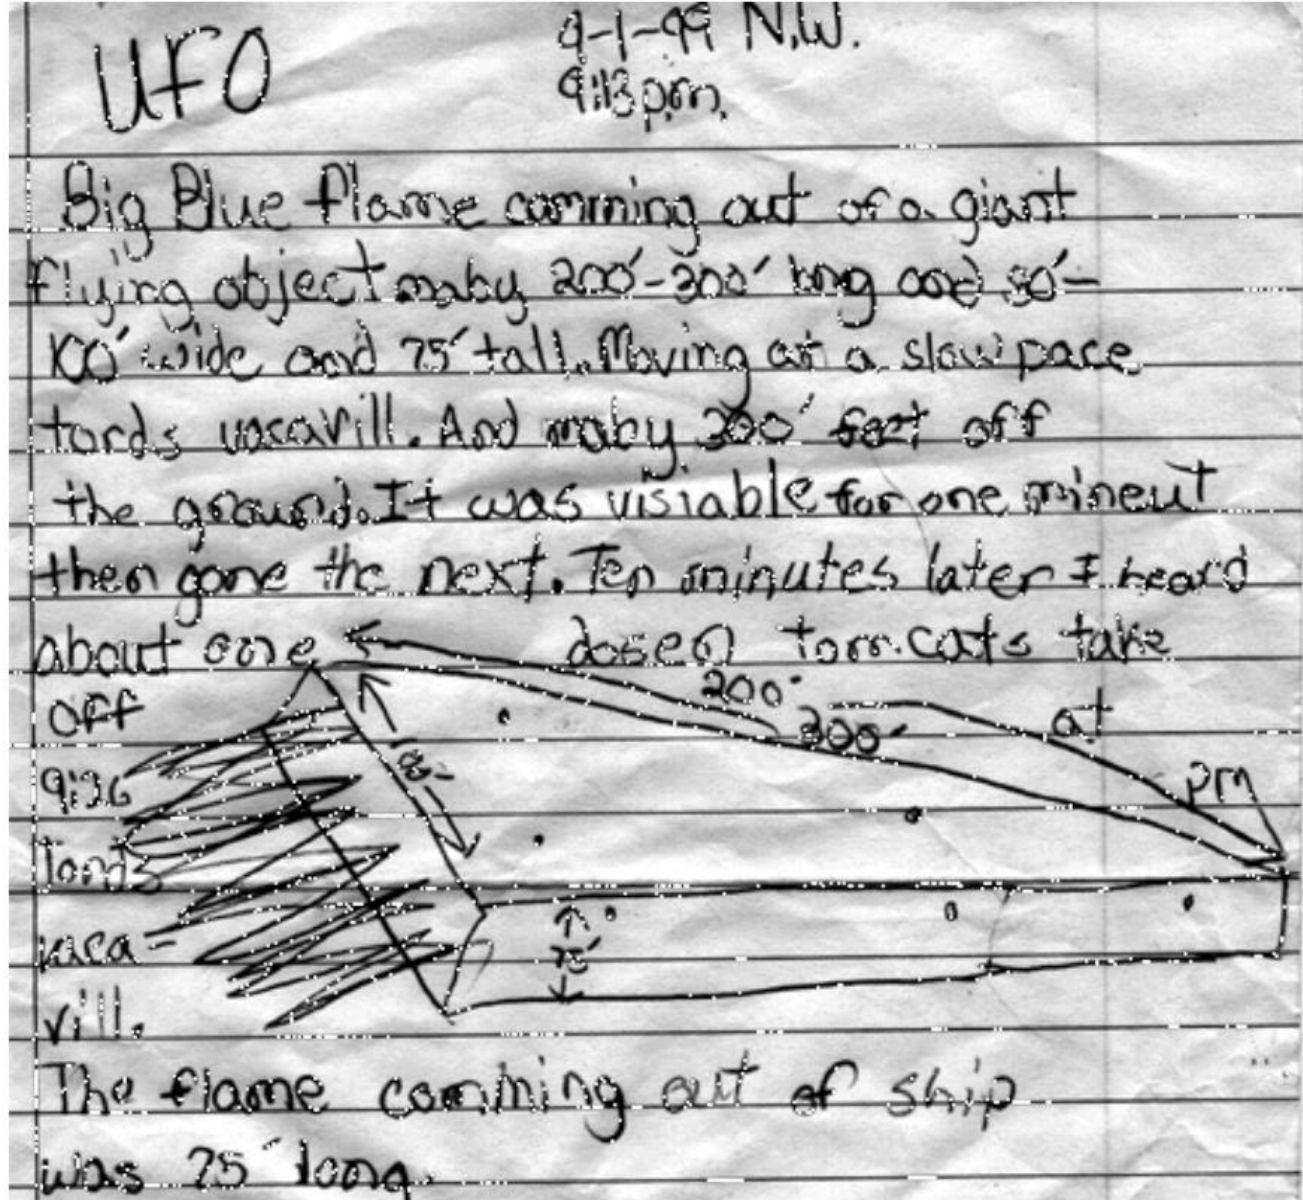 UFO
9-1-99 N.W.
9:13 p.m.
Big Blue flame comming out of a giant
flying object maby 200'-300' long and 80'-
100' wide and 75' tall. Moving at a slow pace
tords vacavill. And maby 300' feet off
the ground. It was visiable for one mineut
then gone the next. Ten minutes later I heard
about one dosen tom cats take
off at
9:26 pm
tords
vaca-
vill.
200'
300'
75'
The flame comming out of ship
was 75' long.